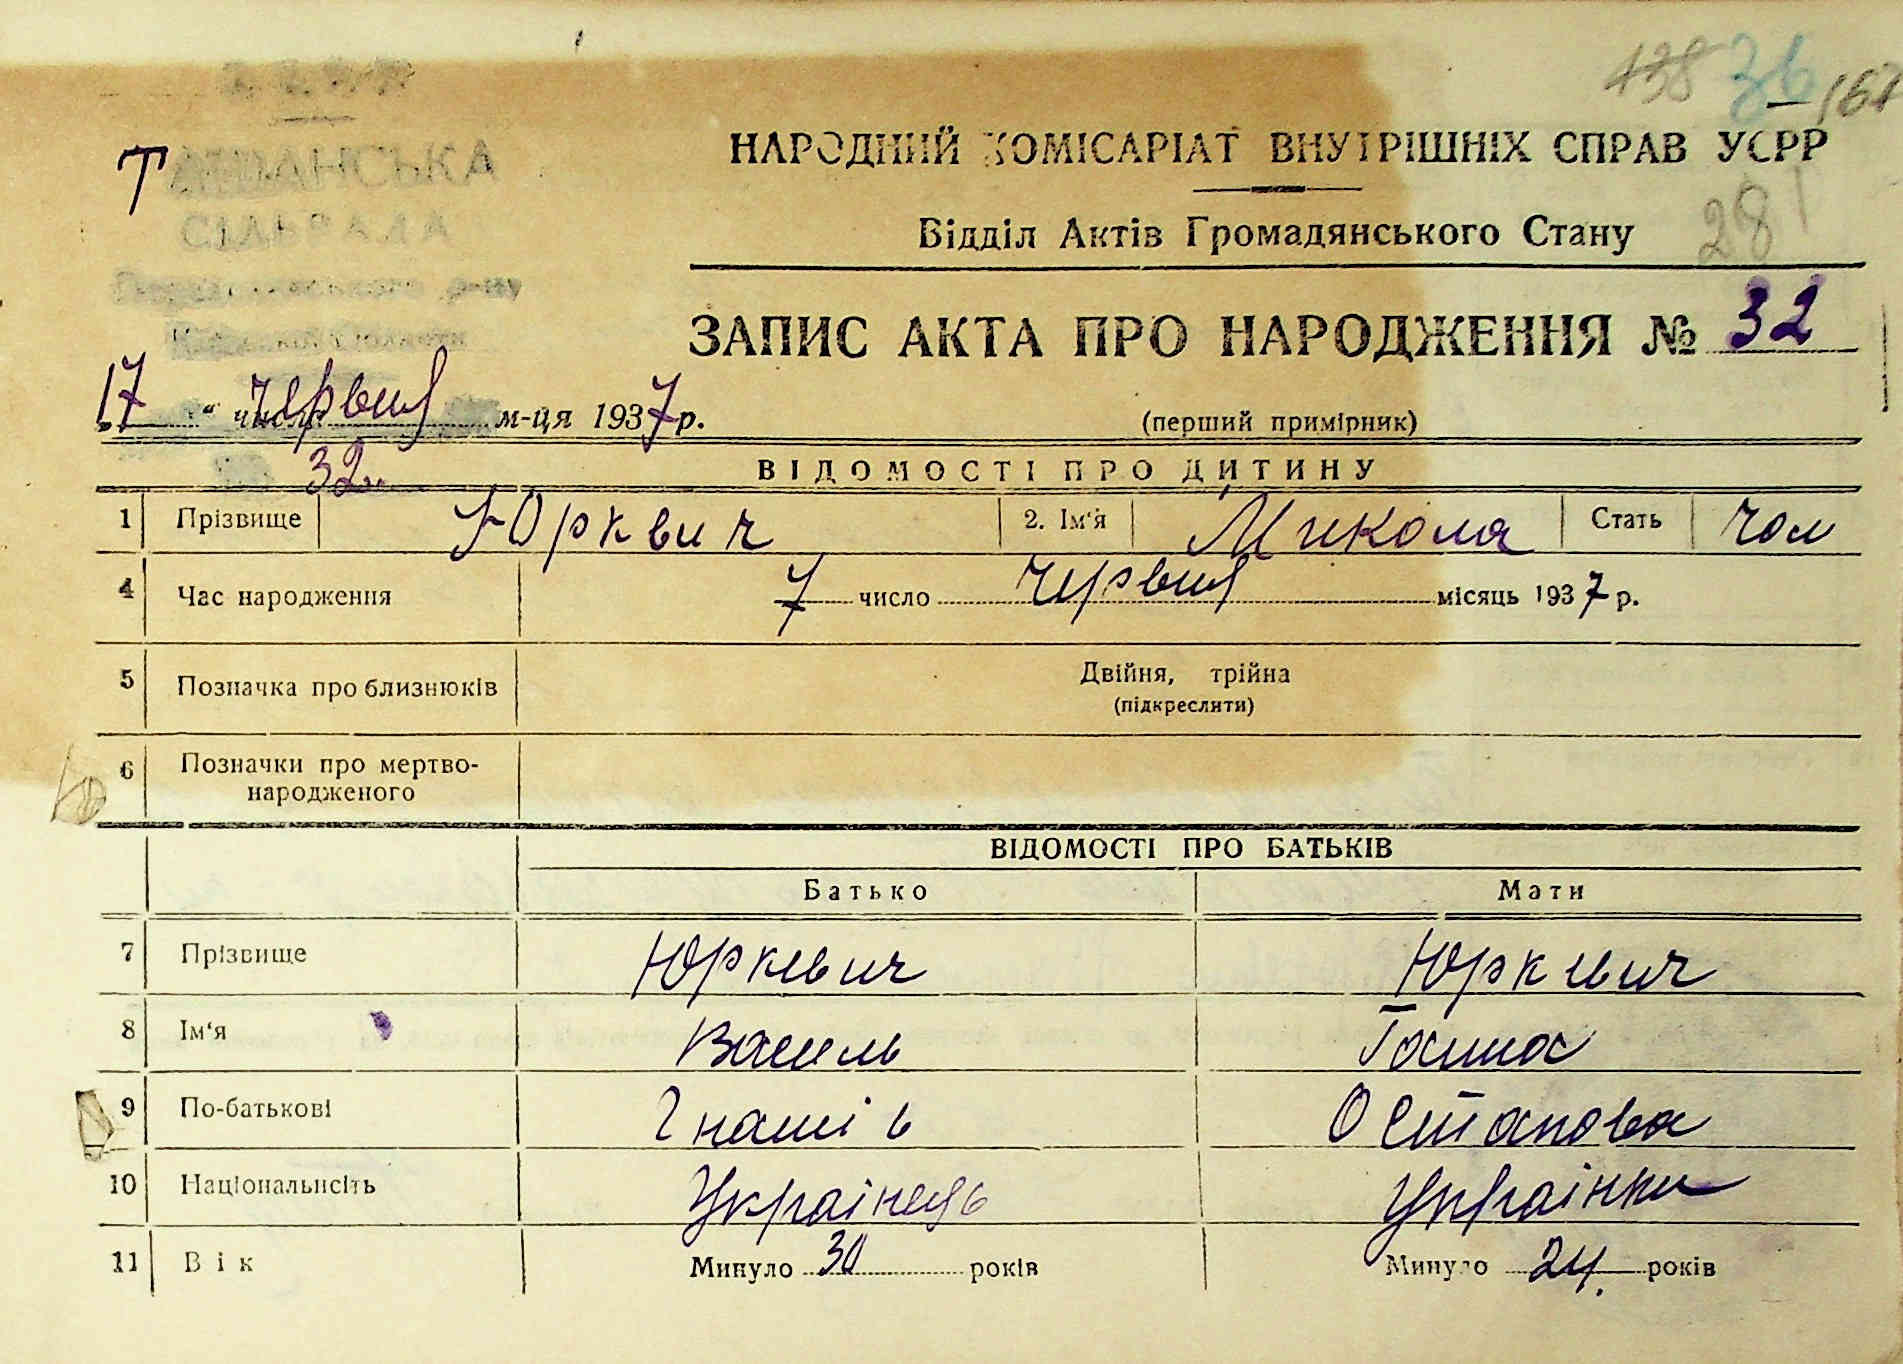 138 36 167
НАРОДНИЙ КОМІСАРІАТ ВНУТРІШНІХ СПРАВ УСРР
СІЛЬРАДА
Відділ Актів Громадянського Стану
281
ЗАПИС АКТА ПРО НАРОДЖЕННЯ № 32
17 " числа червня м-ця 1937 р.
(перший примірник)
32
ВІДОМОСТІ ПРО ДИТИНУ
1 Прізвище Юрквич 2. Ім'я Микола Стать чол
4 Час народження 7 число червня місяць 1937 р.
5 Позначка про близнюків Двійня, трійна
(підкреслити)
6 Позначки про мертво-
народженого
ВІДОМОСТІ ПРО БАТЬКІВ
Батько Мати
7 Прізвище Юркевич Юркевич
8 Ім'я Василь Ганна
9 По-батькові Гнатів Остапова
10 Національність Українець Українка
11 Вік Минуло 30 років Минуло 24 років